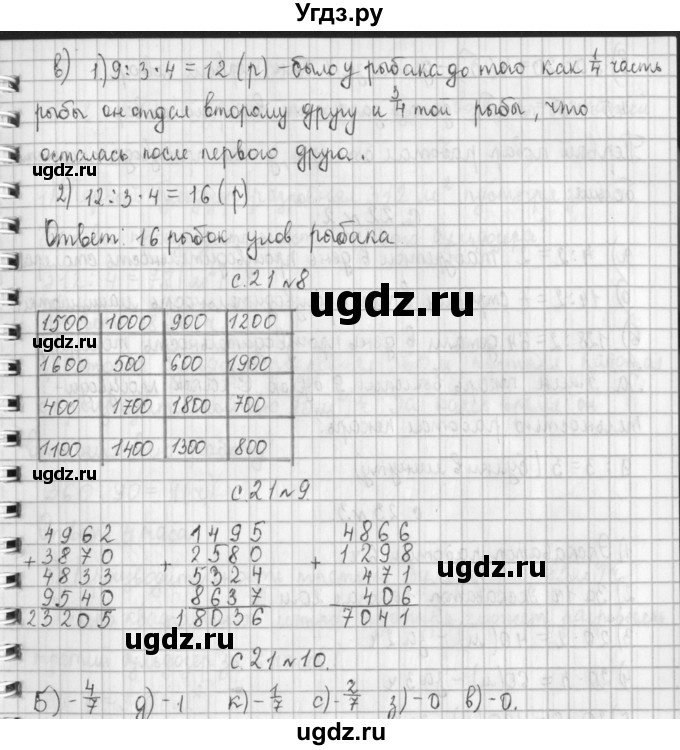 Угдз.ру
в) 1) 9 : 3 · 4 = 12 (р) - было у рыбака до того как 1/4 часть
рыбы он отдал второму другу и 3/4 той рыбы, что
осталась после первого друга.
ugdz.ru
2) 12 : 3 · 4 = 16 (р)
Ответ: 16 рыбок улов рыбака
с.21 №8
ugdz.ru
1500 1000 900 1200
ugdz.ru
1600 500 600 1900
400 1700 1800 700
1100 1400 1300 800
ugdz.ru
с.21 №9
4962 1495 4866
+ 3870 + 2580 + 1298
4833 5324 471
ugdz.ru
9540 8637 406
23205 18036 7041
ugdz.ru
с.21 №10.
Б) - 4/7 д) - 1 к) - 1/7 с) - 2/7 з) - 0 в) - 0.
ugdz.ru